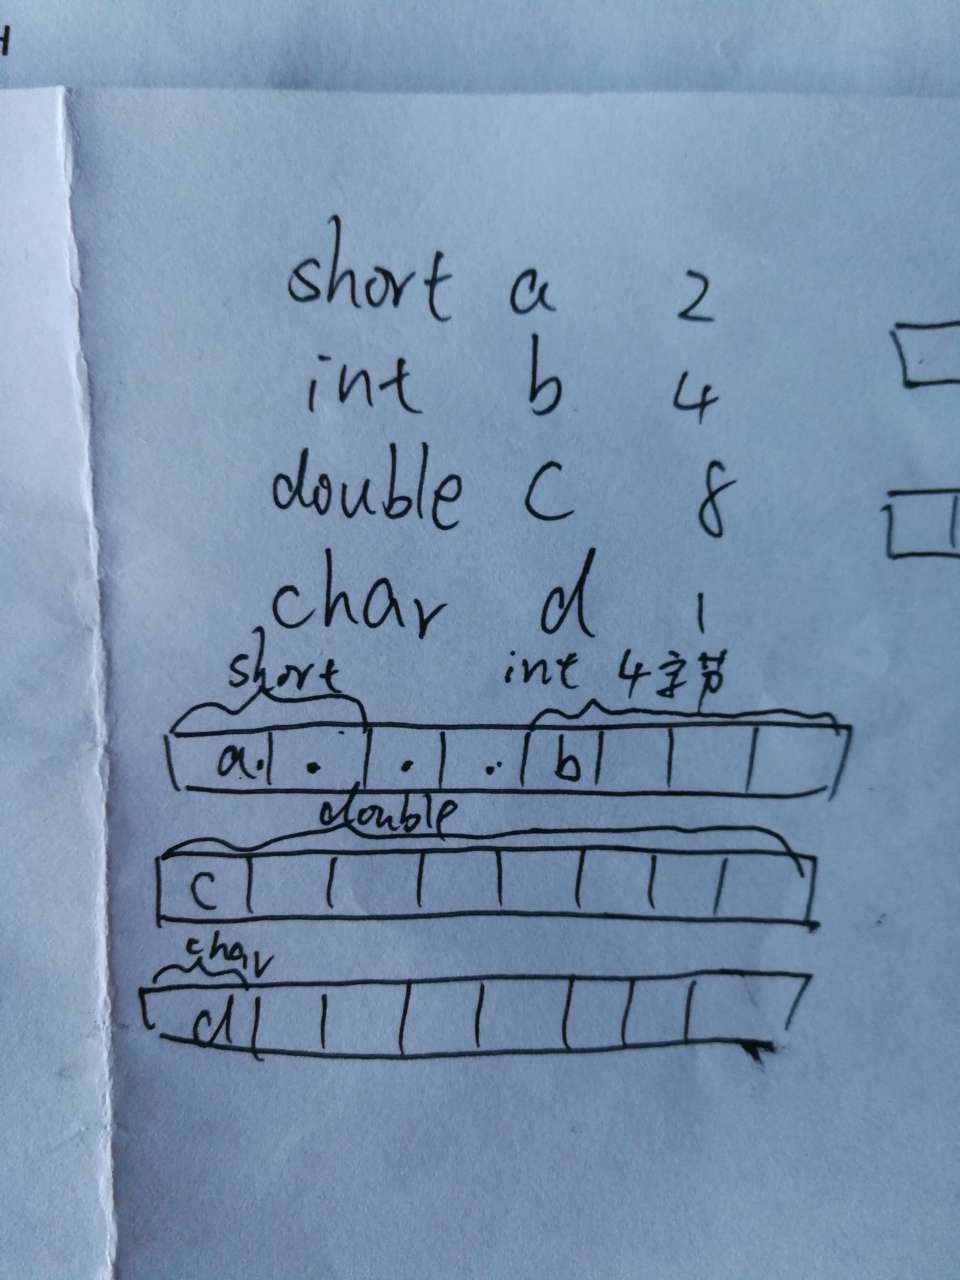 short a 2
int b 4
double c 8
char d 1
short int 4字节
a b
double
c
char
d